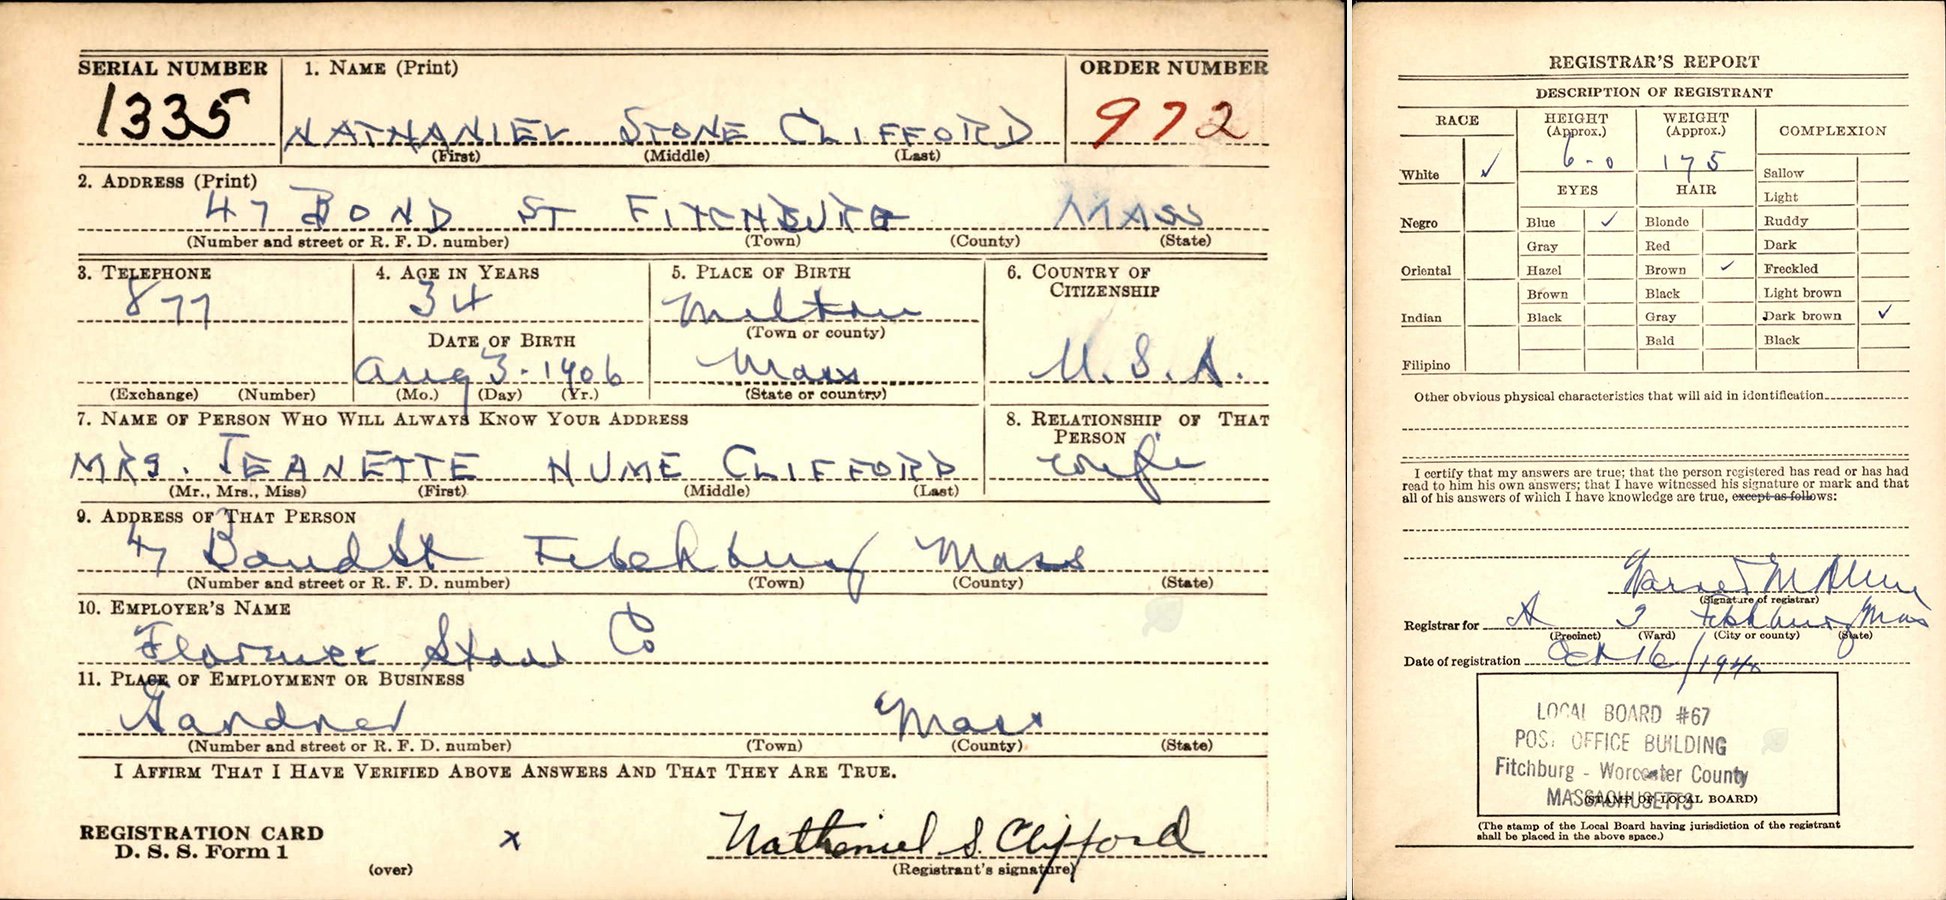 SERIAL NUMBER
1335
1. NAME (Print)
NATHANIEL STONE CLIFFORD
(First) (Middle) (Last)
ORDER NUMBER
972
2. ADDRESS (Print)
47 BOND ST FITCHBURG MASS
(Number and street or R. F. D. number) (Town) (County) (State)
3. TELEPHONE
877
(Exchange) (Number)
4. AGE IN YEARS
34
DATE OF BIRTH
Aug 3 - 1906
(Mo.) (Day) (Yr.)
5. PLACE OF BIRTH
Milton
(Town or county)
Mass
(State or country)
6. COUNTRY OF
CITIZENSHIP
U. S. A.
7. NAME OF PERSON WHO WILL ALWAYS KNOW YOUR ADDRESS
MRS. JEANETTE HUME CLIFFORD
(Mr., Mrs., Miss) (First) (Middle) (Last)
8. RELATIONSHIP OF THAT
PERSON
wife
9. ADDRESS OF THAT PERSON
47 Bond St Fitchburg Mass
(Number and street or R. F. D. number) (Town) (County) (State)
10. EMPLOYER'S NAME
Florence Stove Co
11. PLACE OF EMPLOYMENT OR BUSINESS
Gardner Mass
(Number and street or R. F. D. number) (Town) (County) (State)
I AFFIRM THAT I HAVE VERIFIED ABOVE ANSWERS AND THAT THEY ARE TRUE.
REGISTRATION CARD
D. S. S. Form 1
(over)
x
Nathaniel S. Clifford
(Registrant's signature)
REGISTRAR'S REPORT
DESCRIPTION OF REGISTRANT
RACE
White ✓
Negro
Oriental
Indian
Filipino
HEIGHT
(Approx.)
6-0
WEIGHT
(Approx.)
175
EYES
Blue ✓
Gray
Hazel
Brown
Black
HAIR
Blonde
Red
Brown ✓
Black
Gray
Bald
COMPLEXION
Sallow
Light
Ruddy
Dark
Freckled
Light brown
Dark brown ✓
Black
Other obvious physical characteristics that will aid in identification
I certify that my answers are true; that the person registered has read or has had
read to him his own answers; that I have witnessed his signature or mark and that
all of his answers of which I have knowledge are true, except as follows:
(Signature of registrar)
Registrar for A 3 Fitchburg Mass
(Precinct) (Ward) (City or county) (State)
Date of registration Oct 16/1940
LOCAL BOARD #67
POST OFFICE BUILDING
Fitchburg - Worcester County
MASSACHUSETTS
(STAMP OF LOCAL BOARD)
(The stamp of the Local Board having jurisdiction of the registrant
shall be placed in the above space.)